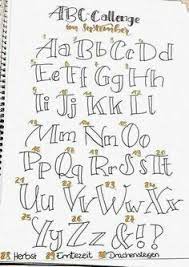 ABC Callenge
im September
Aa Bb Cc Dd
Ee Ff Gg Hh
Ii Jj Kk Ll
Mm Nn Oo
Pp Qq Rr Ss Tt
21 22 23 24
Uu Vv Ww Xx
25 26 27
Yy Zz &!?
28 Herbst 29 Erntezeit 30 Drachensteigen